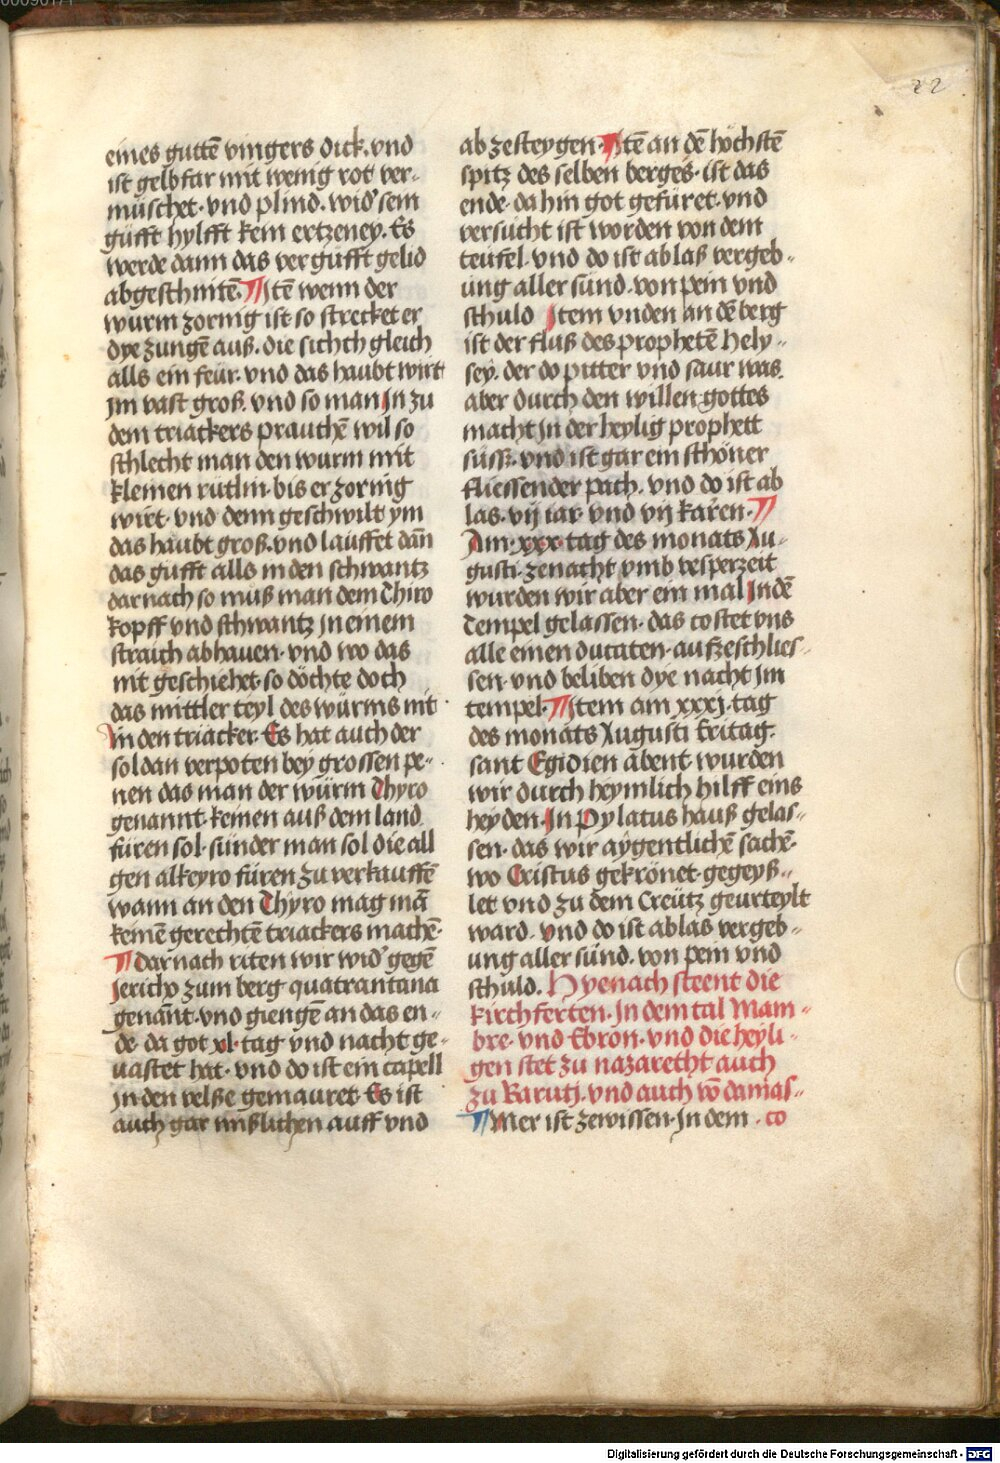 22
eines guttē vingers dick. vnd
ist gelbfar mit wenig rot ver-
müschet · vnd plind · wid' sein
güfft hylfft kein ertzeney. Es
werde dann das vergüfft gelid
abgeschnitē · ¶ Itē wenn der
wurm zornig ist so strecket er
dye zungē auß. die sich ch gleich
alls ein feür · vnd das haubt wirt
jm vast groß. vnd so man In zu
dem triackers prauchē wil so
schlecht man den wurm mit
kleinen rütlin · bis er zornig
wirt · vnd denn geschwilt ym
das haubt groß. vnd lauffet dañ
das gufft alls in den schwantz
darnach so muß man dem Thiro
kopff vnd schwantz jn einem
straich abhauen · vnd wo das
nit geschiehet · so döchte doch
das mittler teyl des würms nit
in den triacker. Es hat auch der
soldan verpoten bey grossen pe-
nen das man der würm Thyro
genannt · keinen auß dem land
füren sol · sünder man sol die all
gen alkeyro füren zu verkauffē
wann an den Thyro mag mā
keinē gerechtē triackers machē ·
¶ darnach riten wir wid' gegē
Jericho zum berg quatrantana
genānt · vnd giengē an das en-
de · da got xl · tag vnd nacht ge-
uastet hat · vnd do ist ein capell
jn den velße gemauret · Es ist
auch gar mißlichen auff vnd
ab zesteygen · ¶ Itē an dē höchstē
spitz des selben berges · ist das
ende · da hin got gefüret · vnd
versücht ist worden von dem
teüfel · vnd do ist ablaß vergeb-
ung aller sünd · von pein vnd
schuld Item vnden an dē berg
ist der fluß des prophetē hely-
sey. der do pitter vnd saur was.
aber durch den willen gottes
macht jn der heylig prophett
süssz. vnd ist gar ein schöner
fliessender pach. vnd do ist ab
las. vij iar · vnd vij karen · ¶
Am · xxx · tag des monats Au-
gusti · zenacht vmb vesperzeit
wurden wir aber ein mal Jn dē
Tempel gelassen · das costet vns
alle einen ducaten · aufzeschlies-
sen · vnd beliben dye nacht jm
tempel · ¶ Item am xxxj · tag
des monats Augusti fritag ·
sant Egidien abent wurden
wir durch heymlich hilff eins
heyden · Jn Pylatus hauß gelas-
sen · das wir aygentlichē sachē ·
wo Cristus gekrönet · gegeyß-
let vnd zu dem Creütz geurteylt
ward. vnd do ist ablas vergeb-
ung aller sünd. von pein vnd
schuld. Hyenach steent die
kirchferten · Jn dem tal Mam-
bre · vnd Ebron · vnd die heyli-
gen stet zu nazaretht auch
zu Barutj. vnd auch vō damas-
¶ Mer ist zewissen · Jn dem · co
Digitalisierung gefördert durch die Deutsche Forschungsgemeinschaft - DFG